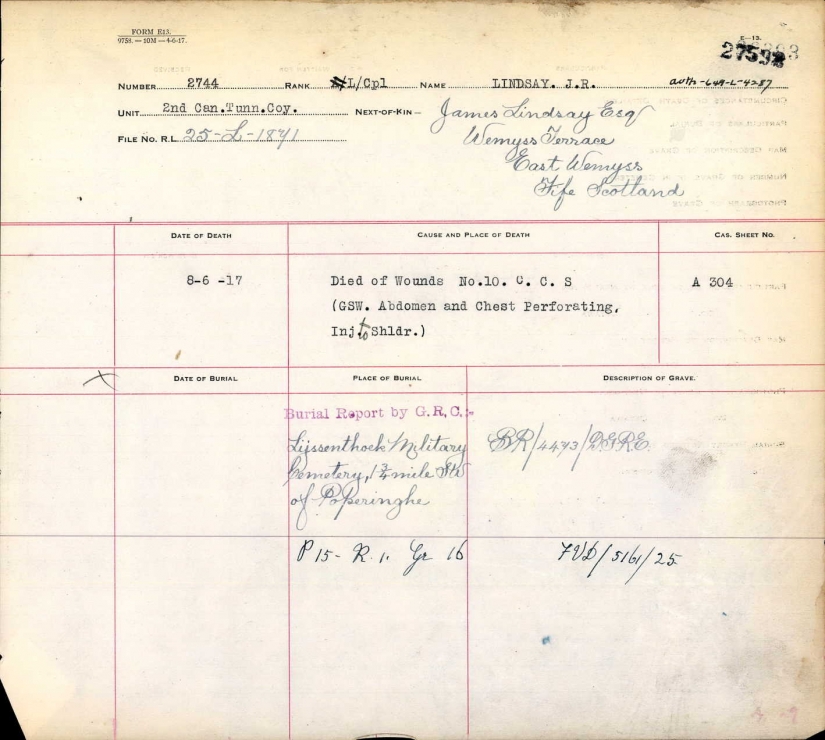 FORM E13.
9758.—10M—4-6-17.
E-13.
27592
NUMBER 2744 RANK L/Cpl NAME LINDSAY. J.R. auth-649-L-4287
UNIT 2nd Can.Tunn.Coy. NEXT-OF-KIN— James Lindsay Esq
FILE NO. R.L. 25-L-1871 Wemyss Terrace
East Wemyss
Fife Scotland
DATE OF DEATH CAUSE AND PLACE OF DEATH CAS. SHEET NO.
8-6 -17 Died of Wounds No.10. C. C. S A 304
(GSW. Abdomen and Chest Perforating,
Inj. to Shldr.)
DATE OF BURIAL PLACE OF BURIAL DESCRIPTION OF GRAVE.
Burial Report by G.R.C:-
Lijssenthoek Military BR/4473/DGRE
Cemetery, 1¾ mile SW
of Poperinghe
P 15- R. 1. Gr 16 7VD/5161/25